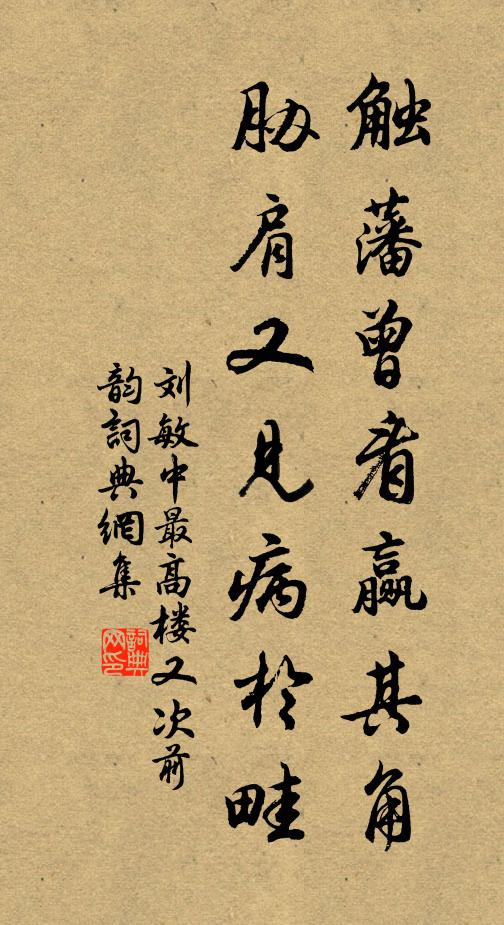 触藩曾看羸其角
胁肩又见病於畦
刘敏中最高楼又次前
韵詞典網集
詞典网印